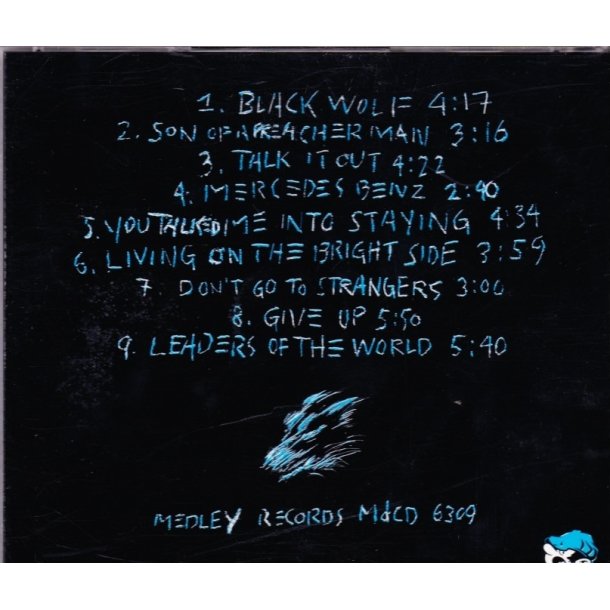 1. BLACK WOLF 4:17
2. SON OF A PREACHER MAN 3:16
3. TALK IT OUT 4:22
4. MERCEDES BENZ 2:40
5. YOU TALKED ME INTO STAYING 4:34
6. LIVING ON THE BRIGHT SIDE 3:59
7 DON'T GO TO STRANGERS 3:00
8. GIVE UP 5:50
9. LEADERS OF THE WORLD 5:40
MEDLEY RECORDS MdCD 6309